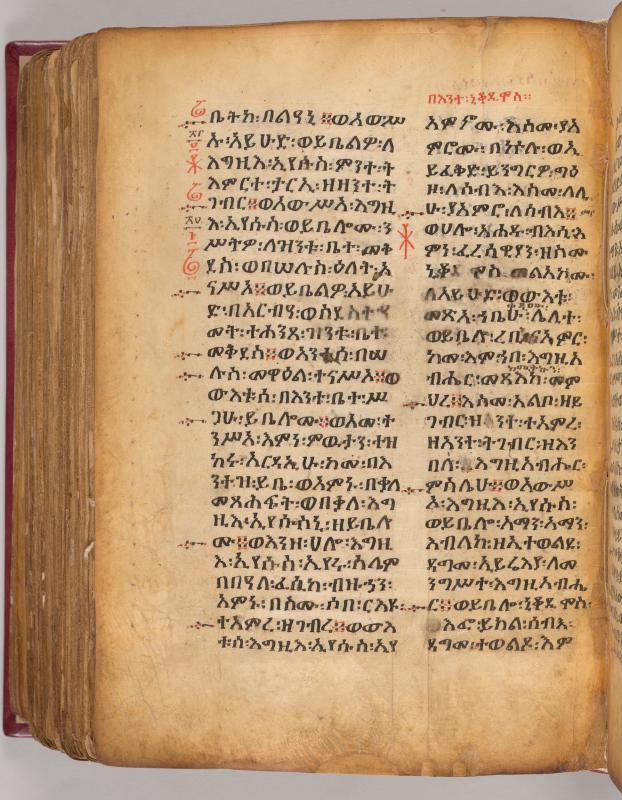 በእንተ፡ኒቆዲሞስ።
ቤትከ፡በልዓኒ፨ወአውሥ
ኡ፡አይሁድ፡ወይቤልዎ፡ለ
እግዚእ፡ኢየሱስ፡ምንተ፡ት
እምርተ፡ታርኢ፡ዘዘንተ፡ት
ገብር፨ወአውሥአ፡እግዚ
እ፡ኢየሱስ፡ወይቤሎሙ፡ን
ሥትዎ፡ለዝንቱ፡ቤተ፡መቅ
ደስ፡ወበሠሉስ፡ዕለት፡አ
ናሥአ፨ወይቤልዎ፡አይሁ
ድ፡በአርብዓ፡ወስደስቱ
መት፡ተሐንጸ፡ዝንቱ፡ቤተ፡
መቅደስ፨ወአንተሰ፡በሠ
ሉስ፡መዋዕል፡ተናሥአ፨ወ
ውእቱሰ፡በእንተ፡ቤተ፡ሥ
ጋሁ፡ይቤሎሙ፨ወአመ፡ተ
ንሥአ፡እምነ፡ምዉታን፡ተዝ
ከሩ፡አርዳኢሁ፡ከመ፡በእ
ንተዝ፡ይቤ፡ወአምኑ፡በቃለ
መጸሐፍት፡ወበቃለ፡እግ
ዚእ፡ኢየሱስኒ፡ዘይቤሎ
ሙ፨ወእንዘ፡ሀሎ፡እግዚ
እ፡ኢየሱስ፡ኢየሩሳሌም
በበዓለ፡ፈሲካ፡ብዙኃን፡
አምኑ፡በስሙ፡ሶበ፡ርእዩ፡
ተአምረ፡ዘገብረ፨ወውእ
ቱሰ፡እግዚእ፡ኢየሱስ፡ኢየ
አምኖሙ፡እስመ፡ያአ
ምሮሙ፡በኵሉ፡ወኢ
ይፈቅድ፡ይንግርዎ፡ግዕ
ዞ፡ለሰብእ፡እስመ፡ለሊ
ሁ፡ያአምሮ፡ለሰብእ፨
ወሀሎ፡አሐዱ፡ብእሲ፡እ
ምነ፡ፈሪሳዊያን፡ዘስሙ
ኒቆዲሞስ፡መልአኮሙ፡
ለአይሁድ፡ውውእቱ፡
መጽአ፡ኀቤሁ፡ሌሊተ፡
ወይቤሎ፡ረቢ፡ናአምር፡
ከመ፡እምኀበ፡እግዚአ
ብሔር፡መጻእከ፡መም
ህረ፨እስመ፡አልቦ፡ዘይ
ገብር፡ዘንተ፡ተአምረ፡
ዘአንተ፡ትገብር፡ዘእን
በለ፡እግዚአብሔር፡
ምስሌሁ፨ወአውሥ
አ፡እግዚእ፡ኢየሱስ፡
ወይቤሎ፡አማን፡አማን፡
እብለከ፡ዘኢተወልደ፡
ዳግመ፡ኢይሬእያ፡ለመ
ንግሥተ፡እግዚአብሔ
ር፨ወይቤሎ፡ኒቆዲሞስ፡
እፎ፡ይክል፡ሰብእ፡
ዳግመ፡ተወልዶ፡እም